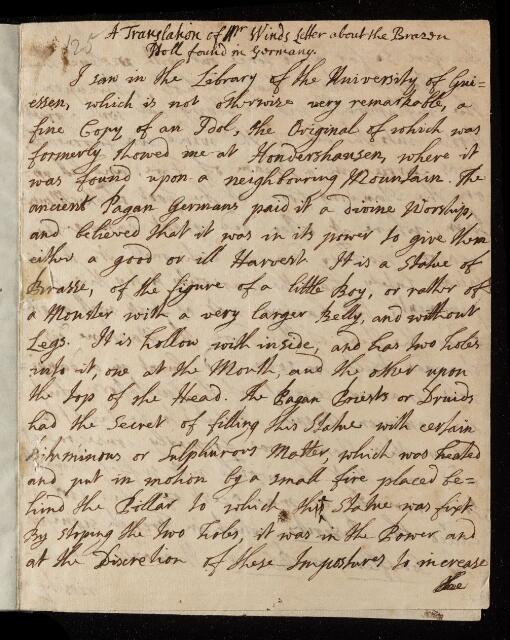 125
A Translation of Mr Winds Letter about the Brazen
Idoll found in Germany.
I saw in the Library of the University of Gui=
essen, which is not otherwise very remarkable, a
fine Copy of an Idol, the Original of which was
formerly showed me at Hondershausen, where it
was found upon a neighbouring Mountain. The
ancient Pagan Germans paid it a divine Worship,
and believed that it was in its power to give them
either a good or ill Harvest. It is a Statue of
Brasse, of the figure of a little Boy, or rather of
a Monster with a very larger Belly, and without
Legs. It is hollow with inside, and has two holes
into it, one at the Mouth, and the other upon
the top of the Head. The Pagan Priests or Druids
had the Secret of filling this Statue with certain
Bituminous or Sulphurous Matter, which was heated
and put in motion by a small fire placed be=
hind the Pillar to which this Statue was fixt
By stoping the two holes, it was in the Power and
at the Discretion of these Impostures to increase
the